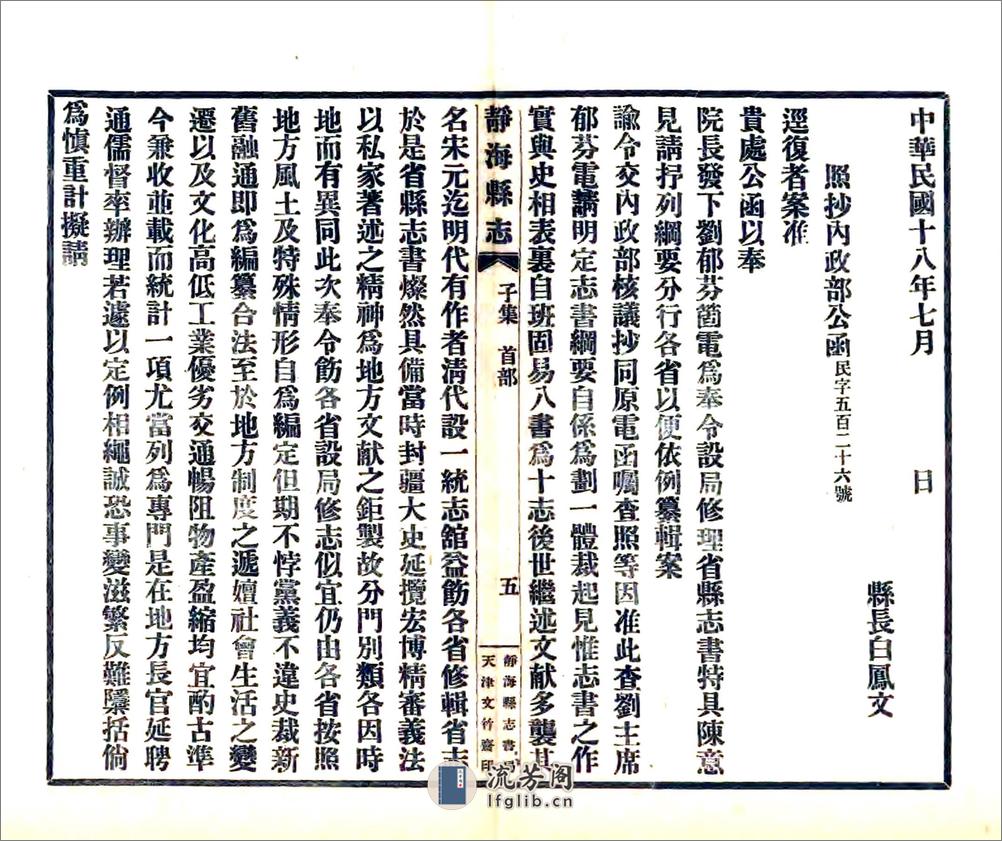 中華民國十八年七月　　日
縣長白鳳文
照抄內政部公函民字五百二十六號
逕復者案准
貴處公函以奉
院長發下劉郁芬箇電爲奉令設局修理省縣志書特具陳意
見請抒列綱要分行各省以便依例纂輯案
諭令交內政部核議抄同原電函囑查照等因准此查劉主席
郁芬電請明定志書綱要自係爲劃一體裁起見惟志書之作
實與史相表裏自班固易八書爲十志後世繼述文献多襲其
靜海縣志
子集　首部
五
靜海縣志書局
天津文竹齋印
名宋元迄明代有作者淸代設一統志舘益飭各省修輯省志
於是省縣志書燦然具備當時封疆大史延攬宏博精審義法
以私家著述之精神爲地方文献之鉅製故分門別類各因時
地而有異同此次奉令飭各省設局修志似宜仍由各省按照
地方風土及特殊情形自爲編定但期不悖黨義不違史裁新
舊融通即爲編纂合法至於地方制度之遞嬗社會生活之變
遷以及文化高低工業優劣交通暢阻物產盈縮均宜酌古準
今兼收並載而統計一項尤當列爲專門是在地方長官延聘
通儒督率辦理若遽以定例相繩誠恐事變滋繁反難隱括倘
爲愼重計擬請
流芳阁
lfglib.cn